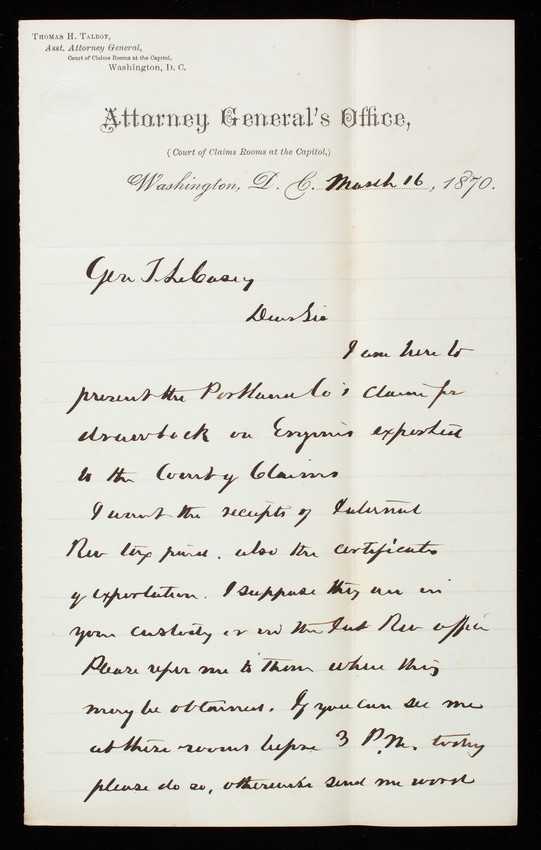 THOMAS H. TALBOT,
Asst. Attorney General,
Court of Claims Rooms at the Capitol,
Washington, D. C.
Attorney General's Office,
(Court of Claims Rooms at the Capitol,)
Washington, D. C. March 16, 1870.
Gen T. L. Casey
Dear Sir
I am here to
present the Portland Co's claim for
drawback on Engines exported
to the Court of Claims
I want the receipts of Internal
Rev tax paid. also the certificates
of exportation. I suppose they are in
your custody or in the Int Rev office
Please refer me to them where they
may be obtained. If you can see me
at these rooms before 3 P.M. today
please do so, otherwise send me word